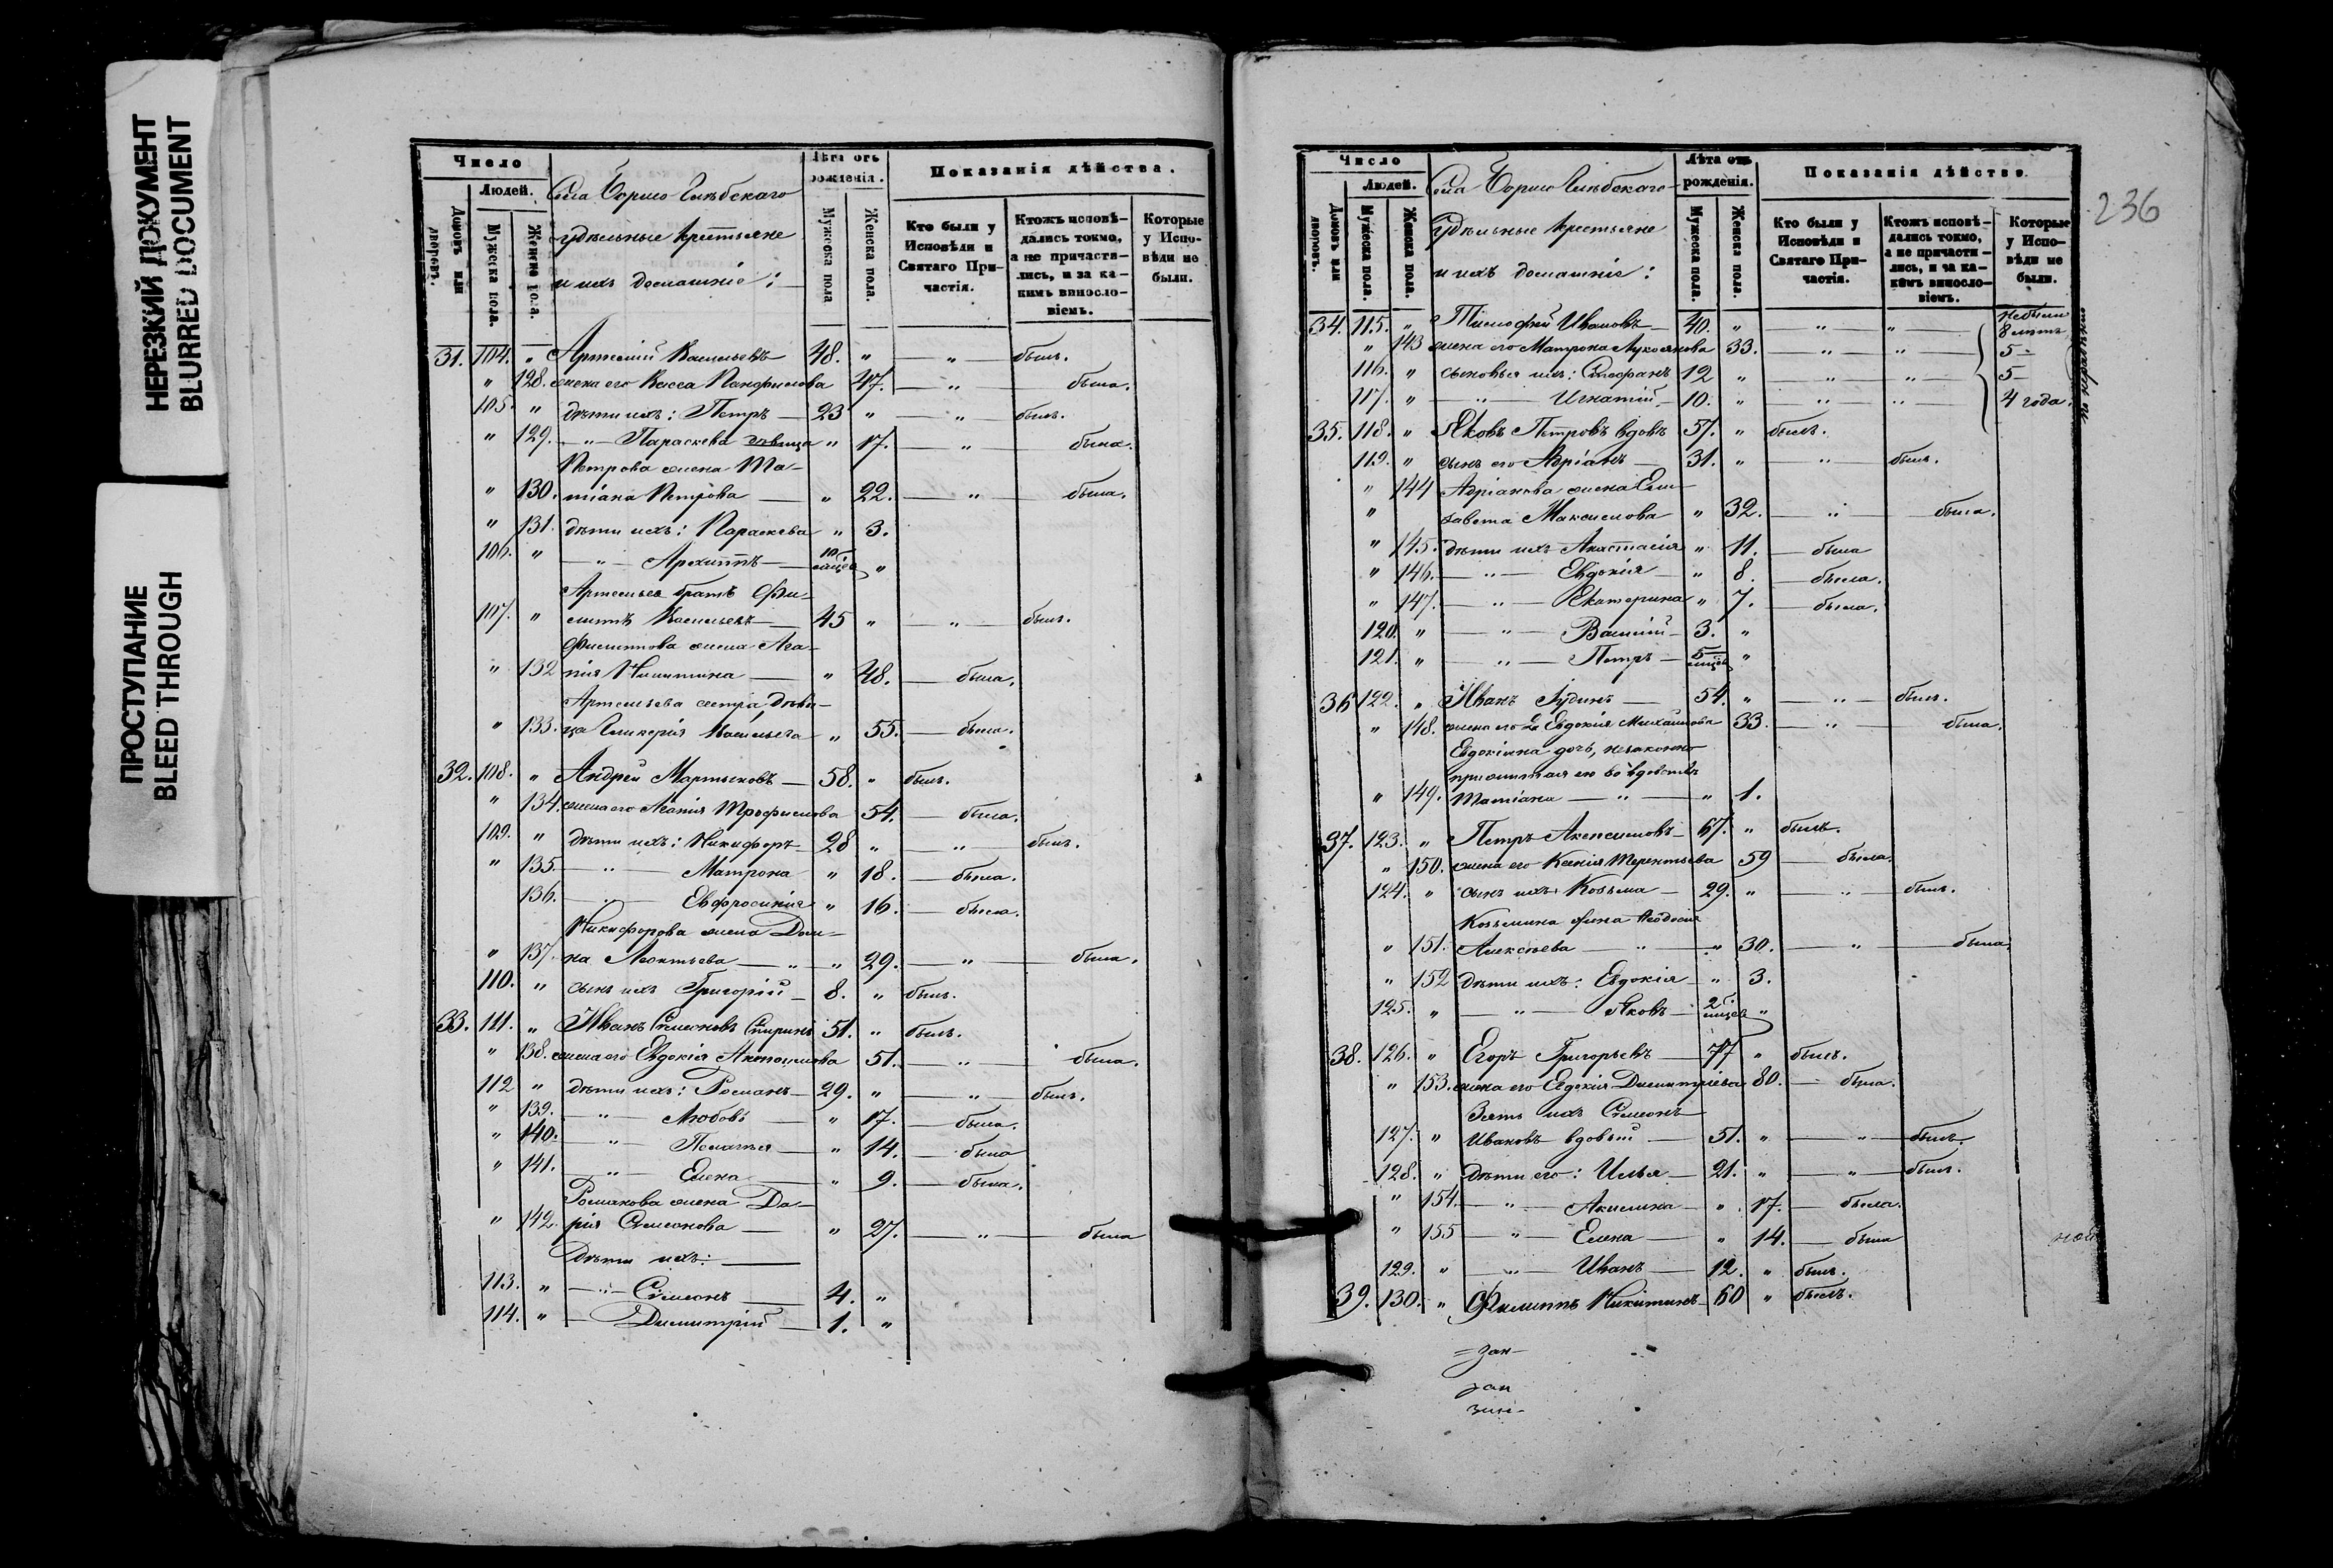 НЕРЕЗКИЙ ДОКУМЕНТ
BLURRED DOCUMENT
ПРОСТУПАНИЕ
BLEED THROUGH
Число
Людей.
Домовъ или дворовъ.
Мужеска пола.
Женска пола.
Села Борисо Глѣбскаго
удѣльные крестьяне
и ихъ домашніе:
Лѣта отъ рожденія.
Мужеска пола
Женска пола.
Показанія дѣйства.
Кто были у Исповѣди и Святаго Причастія.
Ктожъ исповѣдались токмо, а не причастились, и за какимъ винословіемъ.
Которые у Исповѣди не были.
31. 104. „ Артемій Васильевъ 48. „ „ былъ.
„ 128. жена его Васса Панфилова 47. „ была.
105. „ дѣти ихъ: Петръ 23 „ „ былъ.
„ 129. „ Параскева дѣвица „ 17. „ была.
Петрова жена Та-
„ 130. тіана Петрова „ 22. „ была.
„ 131. дѣти ихъ: Параскева „ 3.
106. „ „ Архиппъ 10 мѣсяцев „
Артемьев братъ Фи-
107. „ липпъ Васильевъ 45 „ „ былъ.
Филиппова жена Ага-
„ 132 пія Никитина „ 48. была.
Артемьева сестра, дѣви-
„ 133. ца Гликерія Васильева „ 55. была.
32. 108. „ Андрей Мартыновъ 58. „ былъ.
„ 134. жена его Агапія Трофимова 54. была.
109. „ дѣти ихъ: Никифоръ 28 „ „ былъ.
„ 135. „ Матрона „ 18. была.
136. „ Евфросинія „ 16. была.
Никифорова жена Дом-
„ 137. на Леонтьева „ „ 29. „ была.
110. „ сынъ ихъ Григорій 8. „ былъ.
33. 111. „ Иванъ Симеоновъ Спиринъ 51. „ былъ.
„ 138. жена его Евдокія 51. „ была.
112 „ дѣти ихъ: Романъ 29. „ „ былъ.
„ 139. „ Любовь „ 17. была.
„ 140. „ Пелагея „ 14. была
„ 141. „ Елена „ 9. была.
Романова жена Да-
„ 142. рія Симеонова „ 27. „ была
Дѣти ихъ:
113. „ „ Симеонъ 4. „
114. „ Димитрій 1. „
236
Число
Людей.
Домовъ или дворовъ.
Мужеска пола.
Женска пола.
Села Борисо Глѣбскаго
удѣльные крестьяне
и ихъ домашніе:
Лѣта отъ рожденія.
Мужеска пола.
Женска пола.
Показанія дѣйства.
Кто были у Исповѣди и Святаго Причастія.
Ктожъ исповѣдались токмо, а не причастились, и за какимъ винословіемъ.
Которые у Исповѣди не были.
34. 115. „ Тимофей Ивановъ 40. „ „ „ небыли 8 лѣтъ
„ 143 жена его Матрона Лукоянова 33. „ „ 5
116. „ сыновья ихъ: Стефанъ 12 „ „ „ 5
117. „ „ Игнатій 10. „ „ „ 4 года.
35. 118. „ Яковъ Петровъ вдовъ 57. „ былъ.
119. „ сынъ его Адріанъ 31. „ „ былъ.
„ 144 Адріанова жена Ели-
„ завета Максимова „ 32. „ была.
„ 145. дѣти ихъ Анастасія „ 11. была
„ 146. „ Евдокія „ 8. была.
„ 147. „ Екатерина „ 7. была.
120. „ „ Василій 3. „
121. „ „ Петръ 5 мѣсяцев „
36 122. „ Иванъ Іудинъ 54. „ „ былъ.
„ 148. жена его 2я Евдокія Михайлова 33. „ была.
Евдокіина дочь, незаконно
прижитая ею во вдовствѣ
„ 149. Татіана „ „ 1.
37. 123. „ Петръ 67. „ былъ.
„ 150. жена его Ксенія Терентьева 59 была.
124. „ сынъ ихъ Козьма 29. „ „ былъ.
Козьмина жена Ѳеодосія
„ 151. Алексѣева „ „ 30. „ была
„ 152 дѣти ихъ: Евдокія „ 3.
125. „ „ Яковъ 2 мѣсяцев „
38. 126. „ Егоръ Григорьевъ 77 „ былъ.
„ 153. жена его Евдокія Димитріева 80. была.
Зять ихъ Симеонъ
127. „ Ивановъ вдовый 51. „ „ былъ.
128. „ дѣти его: Илья 21. „ „ былъ.
„ 154. „ Акилина „ 17. была.
„ 155 „ Елена „ 14. была
129. „ „ Иванъ 12. „ былъ.
39. 130. „ Филиппъ Никитинъ 60 „ былъ.